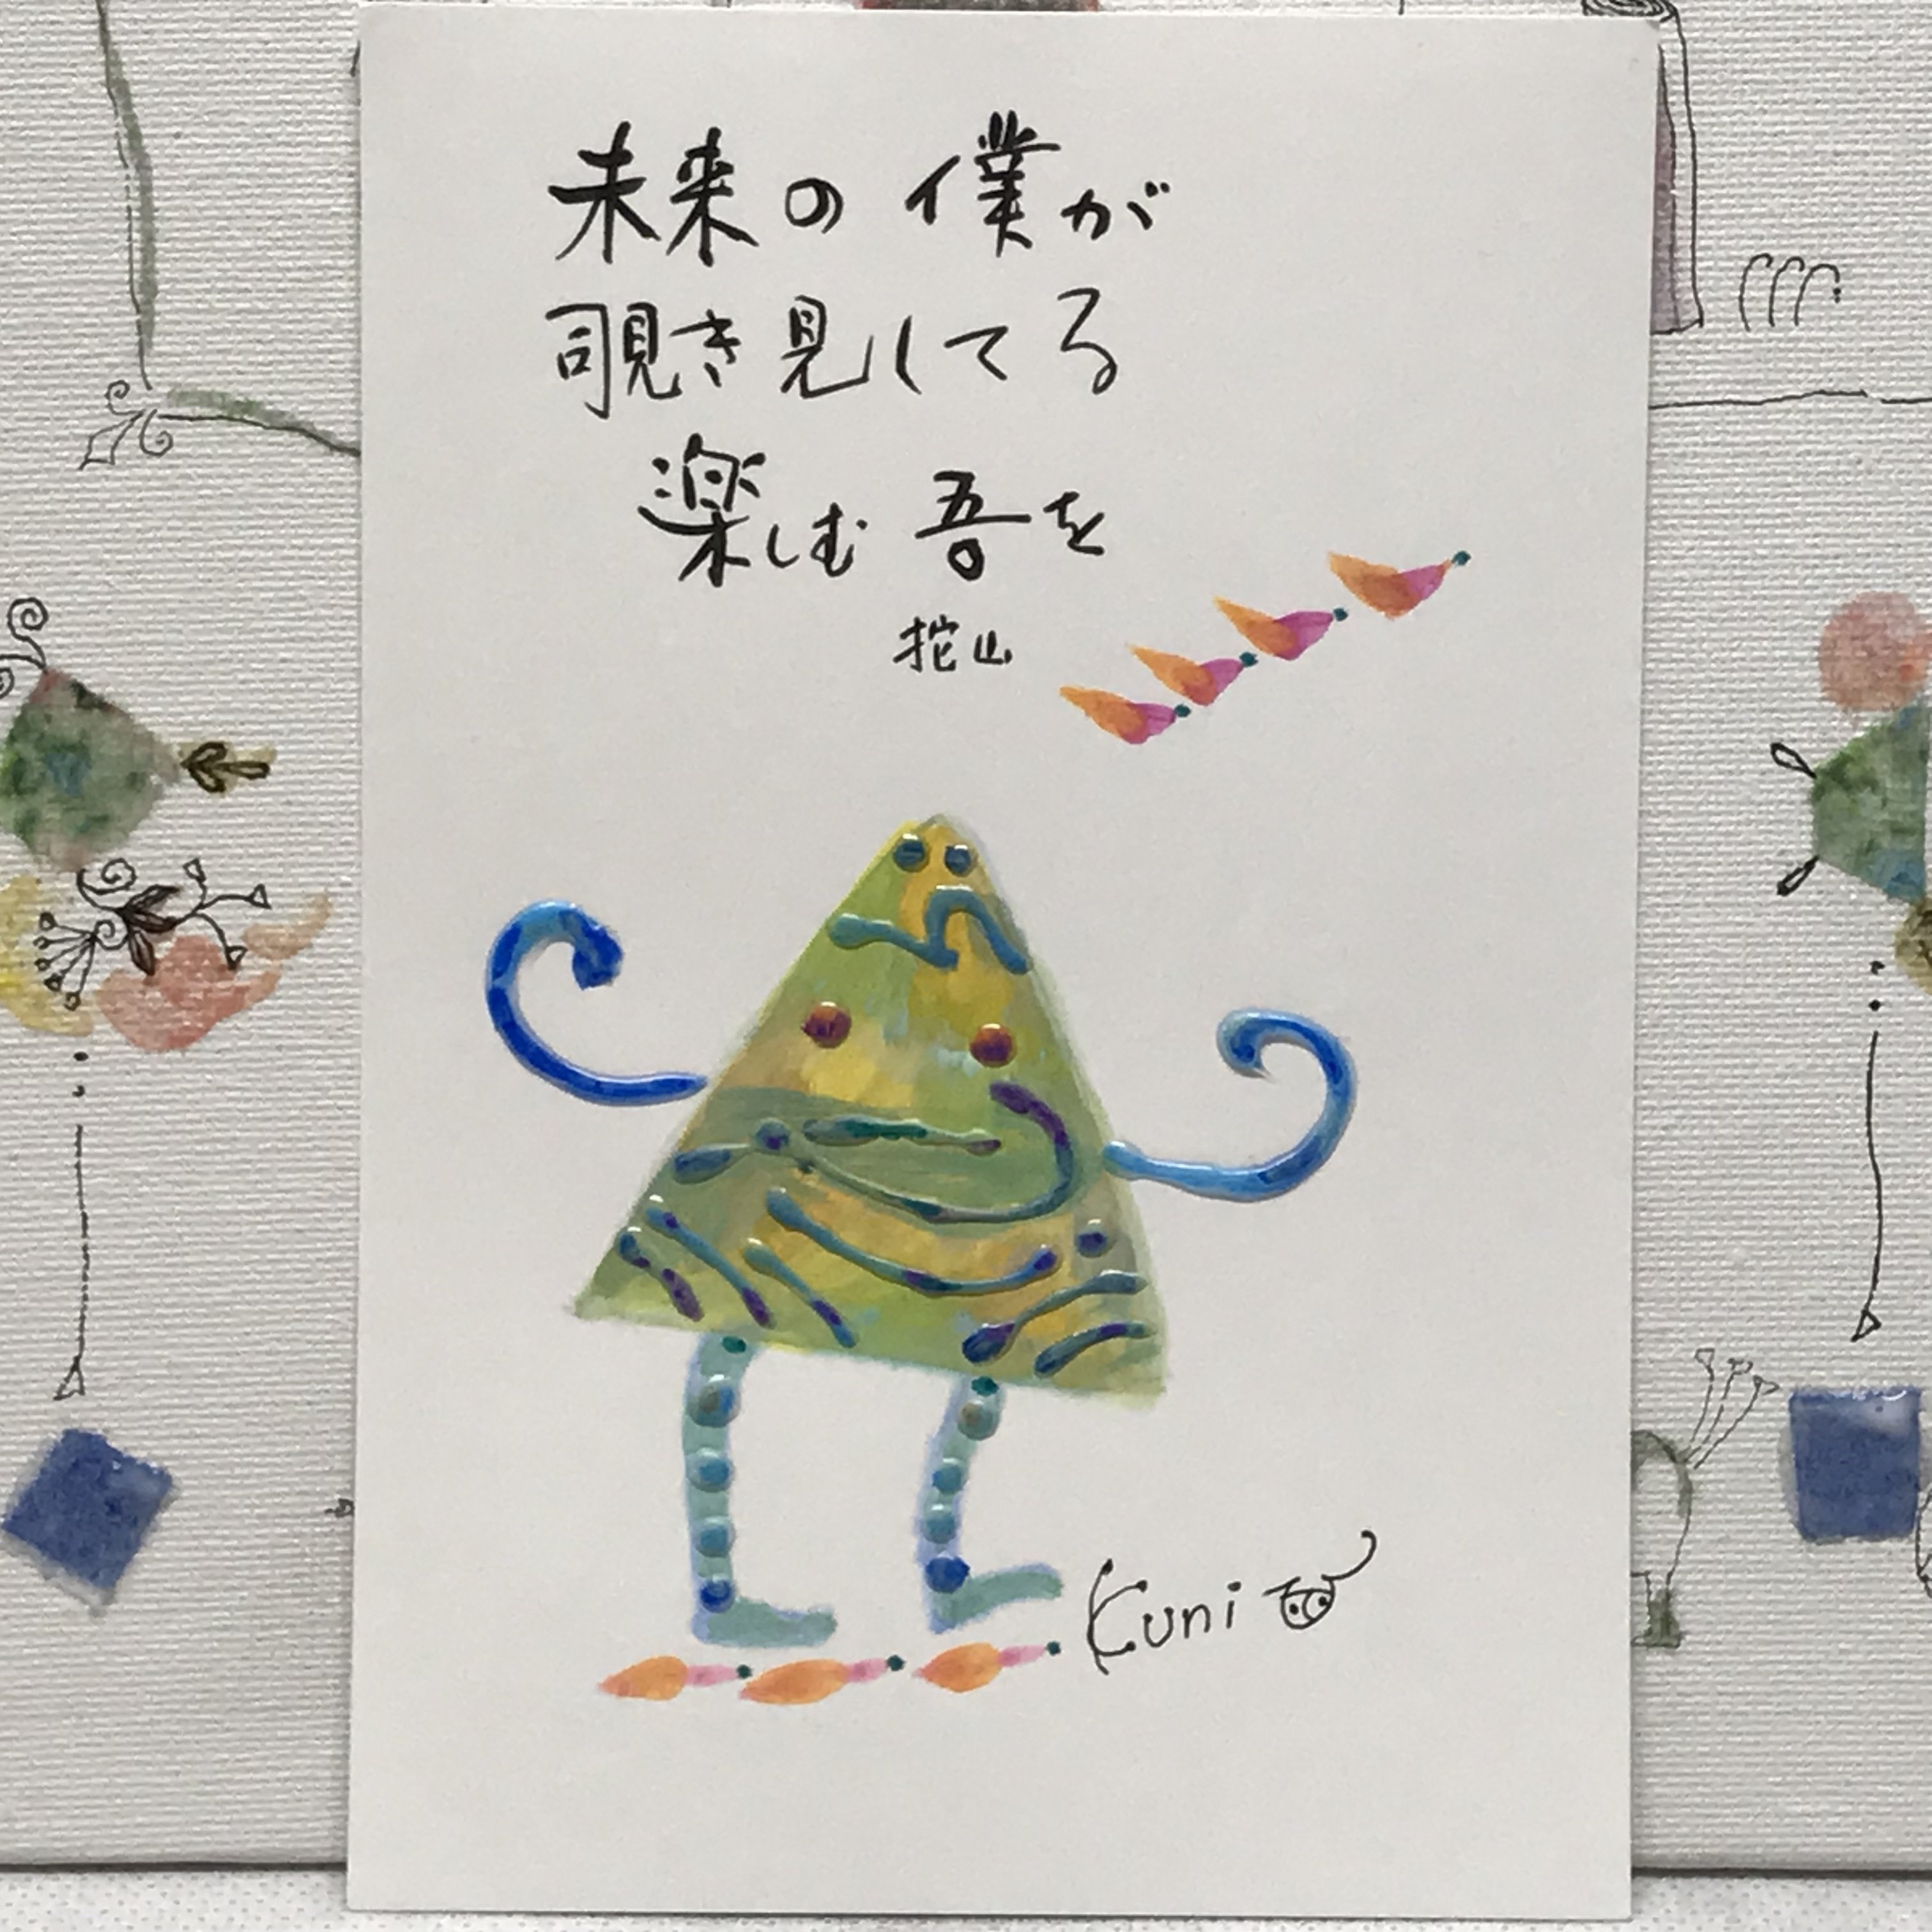 未来の僕が
覗き見してる
楽しむ吾を
挖山
Kuni